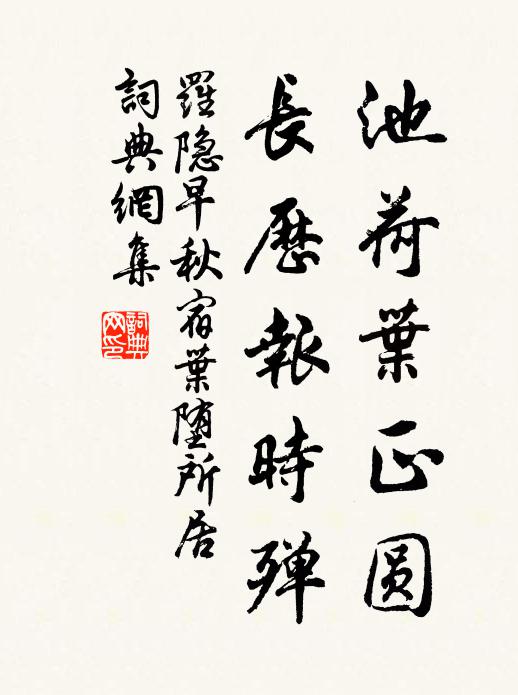 池荷葉正圆
長歷報時殫
羅隐早秋宿葉堕所居
詞典網集
詞典
网印